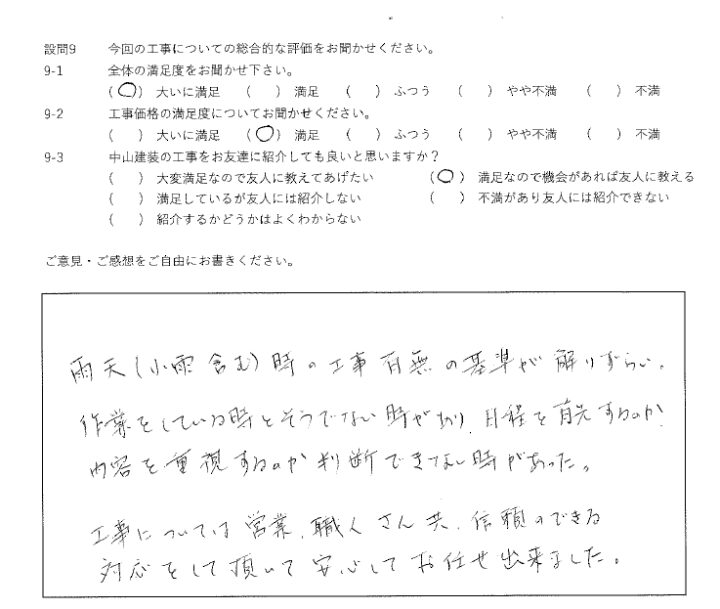 設問9 今回の工事についての総合的な評価をお聞かせください。
9-1 全体の満足度をお聞かせ下さい。
(○) 大いに満足 ( ) 満足 ( ) ふつう ( ) やや不満 ( ) 不満
9-2 工事価格の満足度についてお聞かせください。
( ) 大いに満足 (○) 満足 ( ) ふつう ( ) やや不満 ( ) 不満
9-3 中山建装の工事をお友達に紹介しても良いと思いますか？
( ) 大変満足なので友人に教えてあげたい (○) 満足なので機会があれば友人に教える
( ) 満足しているが友人には紹介しない ( ) 不満があり友人には紹介できない
( ) 紹介するかどうかはよくわからない
ご意見・ご感想をご自由にお書きください。
雨天(小雨含む)時の工事有無の基準が解りずらい。
作業をしている時とそうでない時があり、日程を優先するのか
内容を重視するのか判断できない時があった。
工事については営業、職人さん共、信頼のできる
対応をして頂いて安心してお任せ出来ました。